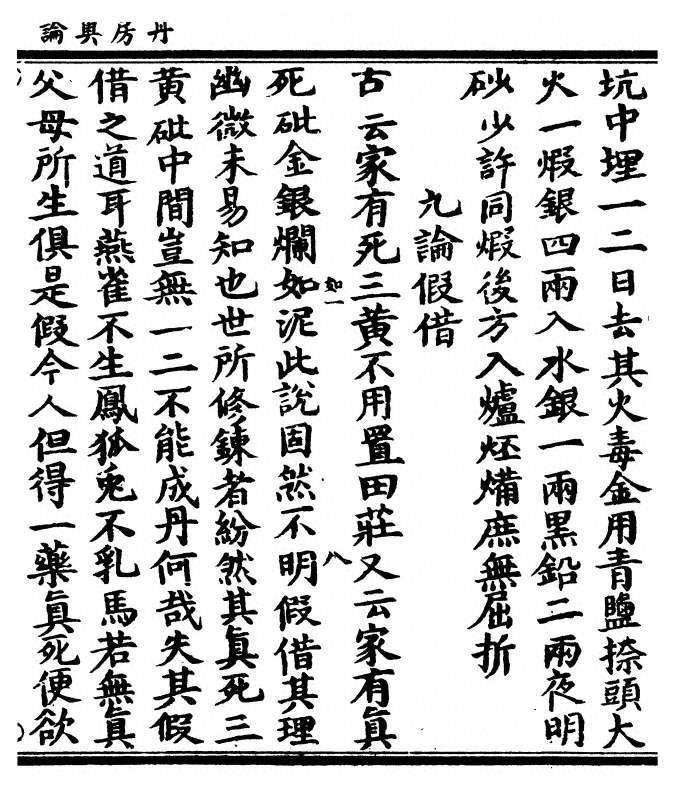 丹房奥論
坑中埋一二日去其火毒金用青鹽捺頭大
火一煆銀四兩入水銀一兩黑鉛二兩夜明
砂少許同煆後方入爐炷㷶庶無屈折
九論假借
古云家有死三黃不用置田莊又云家有眞
如一
八
死砒金銀爛如泥此說固然不明假借其理
幽微未易知也世所修鍊者紛然其眞死三
黃砒中間豈無一二不能成丹何哉失其假
借之道耳燕雀不生鳳狐兔不乳馬若無眞
父母所生俱是假今人但得一藥眞死便欲